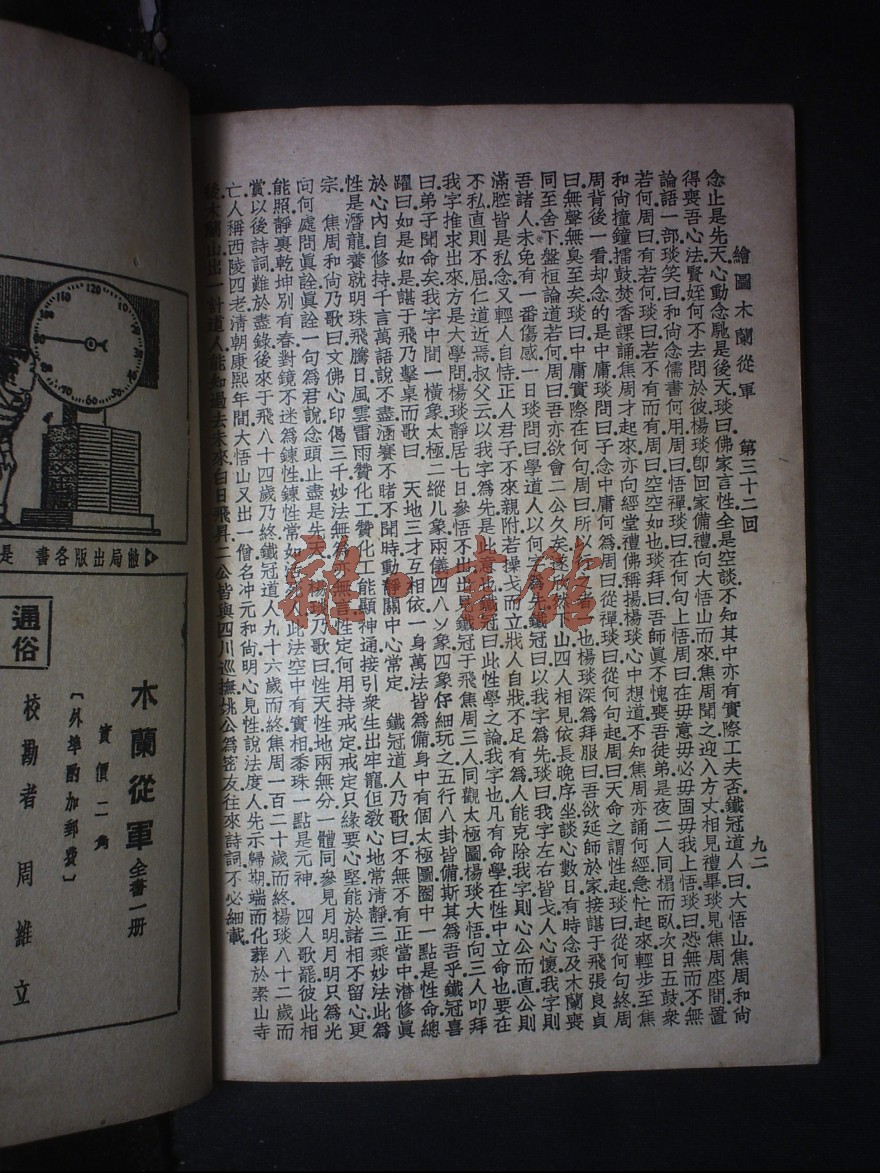 繪圖木蘭從軍　第三十二回　九二
念止是先天心動念凮是後天琰曰佛家言性全是空談不知其中亦有實際工夫否鐵冠道人曰大悟山焦周和尚
得喪吾心法賢姪何不去問於彼楊琰卽回家備禮向大悟山而來焦周聞之迎入方丈相見禮畢琰見焦周座間置
論語一部琰笑曰和尚念儒書何用周曰悟禪琰曰在何句上悟周曰在毋意毋必毋固毋我上悟琰曰恐無而不無
若何周曰有若何琰曰若不有而有周曰空空如也琰拜曰吾師眞不愧喪吾徒弟是夜二人同榻而臥次日五鼓衆
和尚撞鐘擂鼓焚香課誦焦周才起來亦向經堂禮佛稱揚楊琰心中想道不知焦周亦誦何經急忙起來輕步至焦
周背後一看却念的是中庸琰問曰子念中庸何為周曰從禪琰曰從何句起周曰天命之謂性起琰曰從何句終周
曰無聲無臭至矣琰曰中庸實際在何句周曰所以行之者一也楊琰深為拜服曰吾欲延師於家接諶于飛張良貞
同至舍下盤桓論道若何周曰吾亦欲會二公久矣遂欣然下山四人相見依長晚序坐談心數日有時念及木蘭喪
吾諸人未免有一番傷感一日琰問曰學道人以何字為先鐵冠曰以我字為先琰曰我字左右皆戈人心懷我字則
滿腔皆是私念又輕人自恃正人君子不來親附若操戈而立戕人自戕不足有為人能克除我字則心公而直公則
不私直則不屈仁道近焉叔父云以我字為先是此意也鐵冠曰此性學之論我字也凡有命學在性中立命也要在
我字推求出來方是大學問楊琰靜居七日參悟不出出見鐵冠于飛焦周三人同觀太極圖楊琰大悟向三人叩拜
曰弟子聞命矣我字中間一橫象太極二縱几象兩儀四八ㄨ象四象仔細玩之五行八卦皆備斯其為吾乎鐵冠喜
躍曰如是如是諶于飛乃擊桌而歌曰　天地三才互相依一身萬法皆為備身中有個太極圖圈中一點是性命總
於心內自修持千言萬語說不盡涵養不睹不聞時動靜關中心常定　鐵冠道人乃歌曰不無不有正當中潛修眞
性是潛龍養就明珠飛騰日風雲雷雨贊化工贊化工能顯神通接引衆生出牢籠但教心地常清靜三乘妙法此為
宗　焦周和尚乃歌曰文佛心印偈三千妙法無為亦無言性定何用持戒定戒定只緣要心堅能於諸相不留心更
向何處問眞詮眞詮一句為君說念頭止盡是先天　楊琰乃歌曰性天性地兩無分一體同參見月明月明只為光
能照靜裏乾坤別有春對鏡不迷為鍊性鍊性常如不死人此法空中有實相黍珠一點是元神　四人歌罷彼此相
賞以後詩詞難於盡錄後來于飛八十四歲乃終鐵冠道人九十六歲而終焦周一百二十歲而終楊琰八十二歲而
亡人稱西陵四老清朝康熙年間大悟山又出一僧名冲元和尚明心見性說法度人先示歸期端而化葬於素山寺
後木蘭山出一針道人能知過去未來白日飛昇二公皆與四川巡撫姚公為密友往來詩詞不必細載
雅・書館
110 120
100
90
80
70
60
敝局出版各書　是
通俗
木蘭從軍　全書一册
實價二角
〔外埠酌加郵費〕
校勘者　周維立